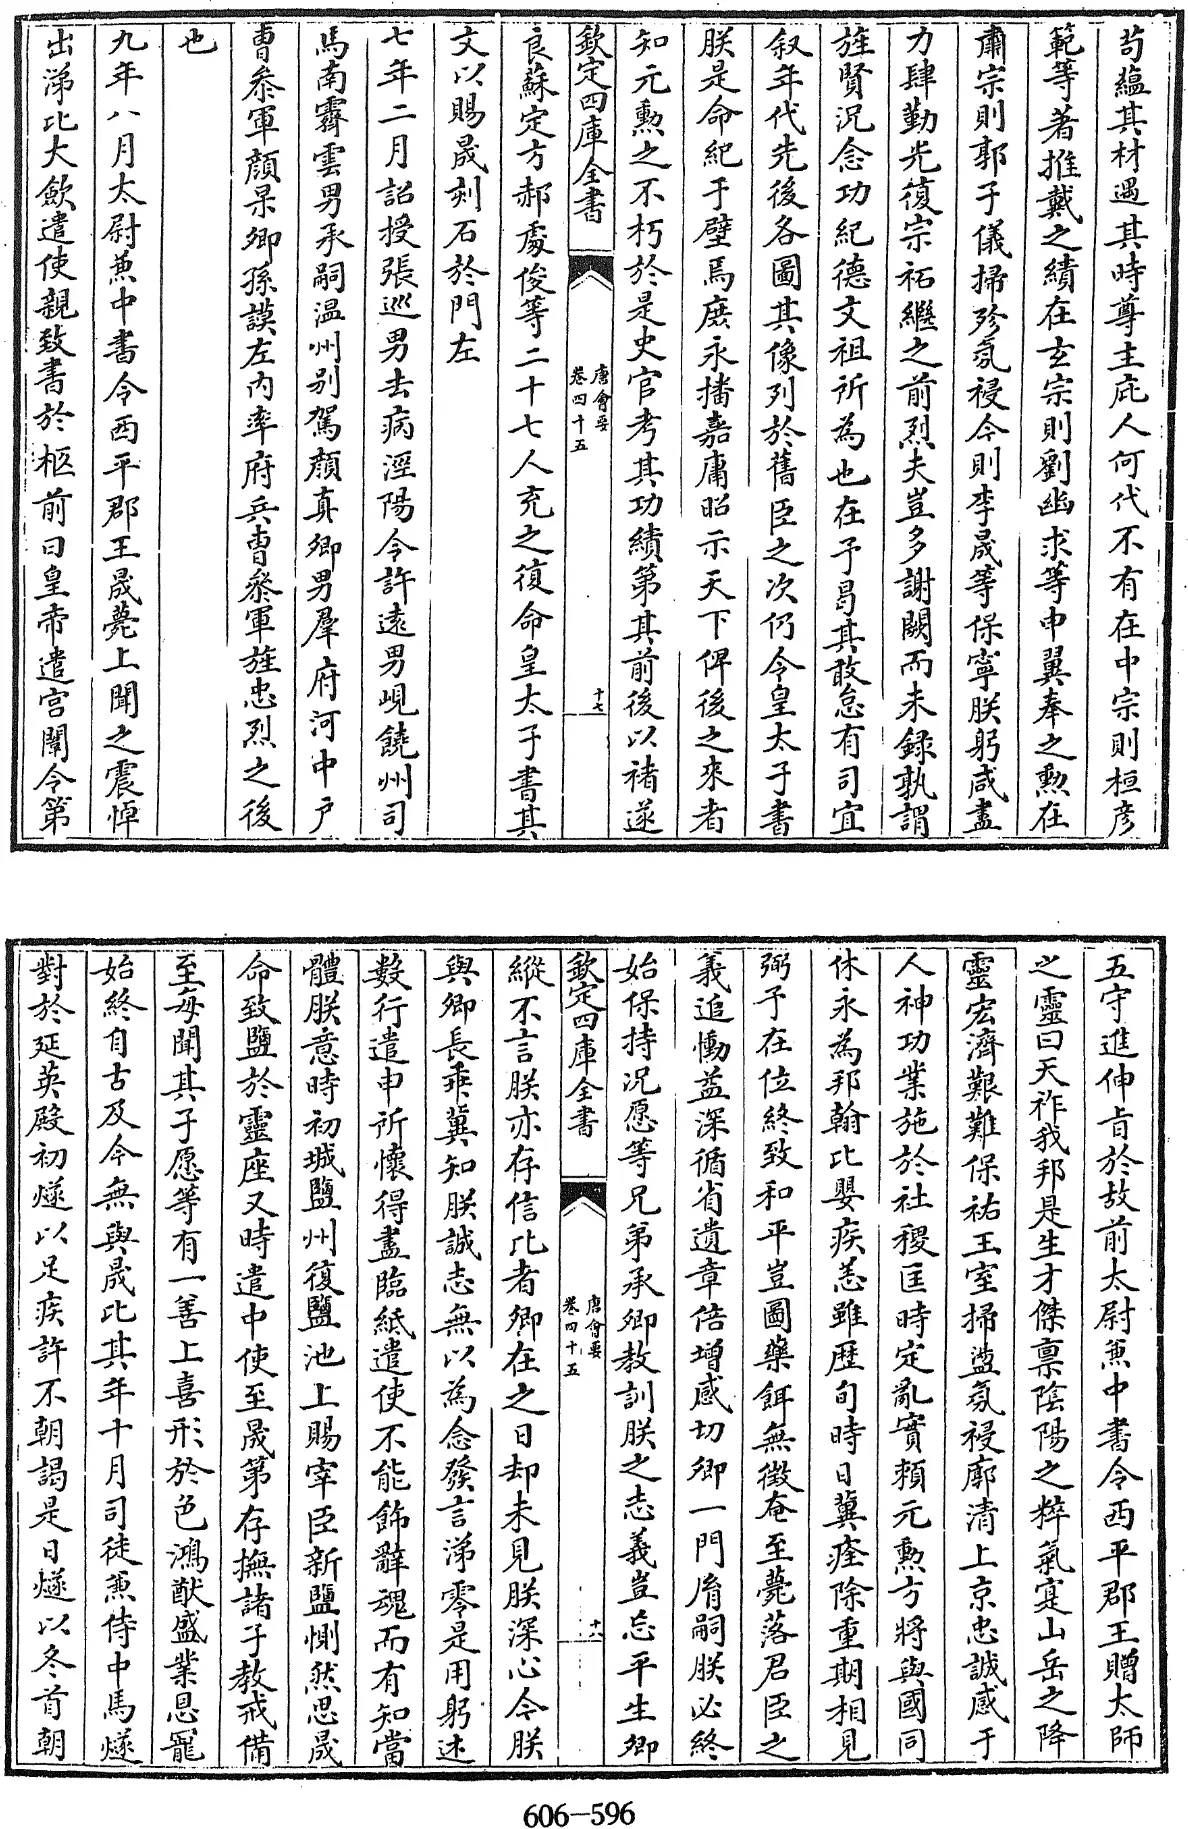 茍藴其材遇其時尊主庇人何代不有在中宗則桓彦
範等著推戴之績在玄宗則劉幽求等申翼奉之勲在
肅宗則郭子儀掃殄氛祲今則李晟等保寧朕躬咸盡
力肆勤光復宗祏繼之前烈夫豈多謝闕而未録孰謂
旌賢況念功紀德文祖所為也在予曷其敢怠有司宜
叙年代先後各圖其像列於舊臣之次仍令皇太子書
朕是命紀于壁焉庶永播嘉庸昭示天下俾後之來者
知元勲之不朽於是史官考其功績第其前後以褚遂
欽定四庫全書
唐會要
卷四十五
十七
良蘇定方郝處俊等二十七人充之復命皇太子書其
文以賜晟刻石於門左
七年二月詔授張巡男去病涇陽令許遠男峴饒州司
馬南霽雲男承嗣温州别駕顔真卿男羣府河中户
曹叅軍顔杲卿孫謨左内率府兵曹叅軍旌忠烈之後
也
九年八月太尉兼中書令西平郡王晟薨上聞之震悼
出涕比大歛遣使親致書於柩前曰皇帝遣宫闈令第
五守進伸旨於故前太尉兼中書令西平郡王贈太師
之靈曰天祚我邦是生才傑禀陰陽之粹氣寔山岳之降
靈宏濟艱難保祐王室掃盪氛祲廓清上京忠誠感于
人神功業施於社稷匡時定亂實頼元勲方將與國同
休永為邦翰比嬰疾恙雖歴旬時日冀痊除重期相見
弼予在位終致和平豈圖藥餌無徵奄至薨落君臣之
義追慟益深循省遺章倍增感切卿一門脩嗣朕必終
始保持況愿等兄弟承卿教訓朕之志義豈忘平生卿
欽定四庫全書
唐會要
卷四十五
十八
縱不言朕亦存信比者卿在之日却未見朕深心今朕
與卿長乖冀知朕誠志無以為念發言涕零是用躬述
數行遣申所懐得盡臨紙遣使不能飾辭魂而有知當
體朕意時初城鹽州復鹽池上賜宰臣新鹽惻然思晟
命致鹽於靈座又時遣中使至晟第存撫諸子教戒備
至每聞其子愿等有一善上喜形於色鴻猷盛業恩寵
始終自古及今無與晟比其年十月司徒兼侍中馬燧
對於延英殿初燧以足疾許不朝謁是日燧以冬首朝
606-596